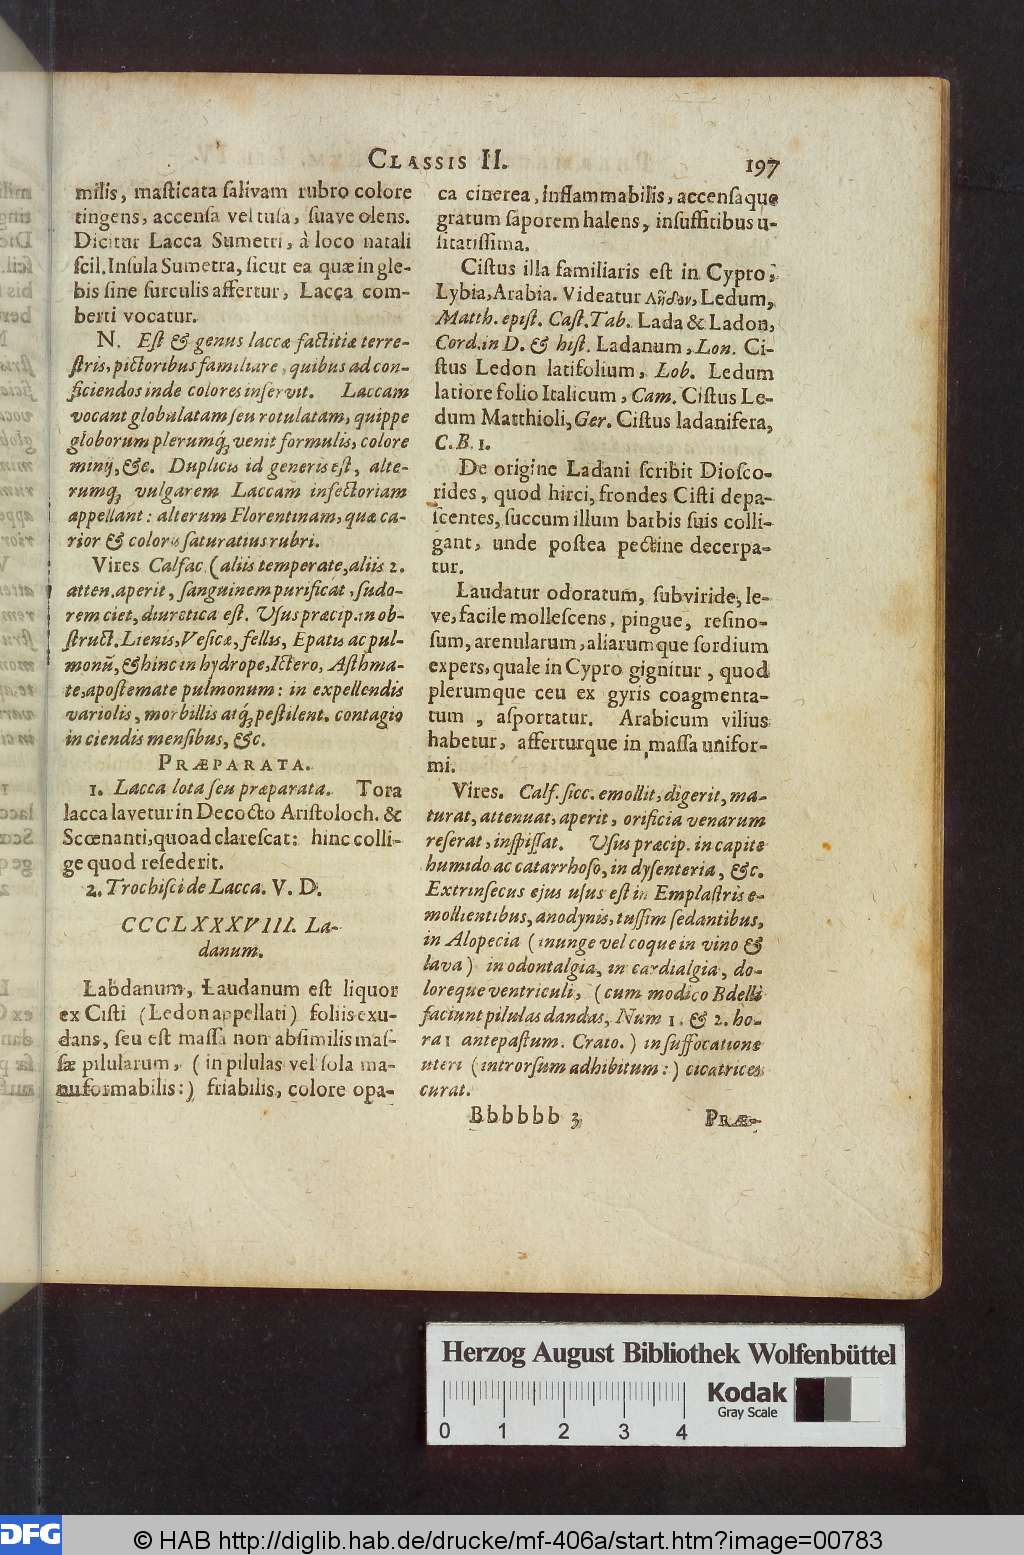 CLASSIS II.
197
milis, masticata salivam rubro colore
tingens, accensa vel tusa, suave olens.
Dicitur Lacca Sumetri, à loco natali
scil. Insula Sumetra, sicut ea quæ in gle-
bis sine surculis affertur, Lacca com-
berti vocatur.
N. Est & genus laccæ factitiæ terre-
stris, pictoribus familiare, quibus ad con-
ficiendos inde colores inservit. Laccam
vocant globulatam seu rotulatam, quippe
globorum plerumq; venit formulis, colore
minij, &c. Duplicis id generis est, alte-
rumq; vulgarem Laccam infectoriam
appellant: alterum Florentinam, quæ ca-
rior & coloris saturatius rubri.
Vires Calfac. (aliis temperate, aliis 2.
atten. aperit, sanguinem purificat, sudo-
rem ciet, diuretica est. Usus præcip. in ob-
struct. Lienis, Vesicæ, fellis, Epatis ac pul-
monũ, & hinc in hydrope, Ictero, Asthma-
te, apostemate pulmonum: in expellendis
variolis, morbillis atq; pestilent. contagio
in ciendis mensibus, &c.
PRÆPARATA.
1. Lacca lota seu præparata. Tota
lacca lavetur in Decocto Aristoloch. &
Scœnanti, quoad clarescat: hinc colli-
ge quod resederit.
2. Trochisci de Lacca. V. D.
CCCLXXXVIII. La-
danum.
Labdanum, Laudanum est liquor
ex Cisti (Ledon appellati) foliis exu-
dans, seu est massa non absimilis mas-
sæ pilularum, (in pilulas vel sola ma-
nu formabilis:) friabilis, colore opa-
ca cinerea, inflammabilis, accensaque
gratum saporem halens, in suffitibus u-
sitatissima.
Cistus illa familiaris est in Cypro,
Lybia, Arabia. Videatur Λῆδον, Ledum,
Matth. epist. Cast. Tab. Lada & Ladon,
Cord. in D. & hist. Ladanum, Lon. Ci-
stus Ledon latifolium, Lob. Ledum
latiore folio Italicum, Cam. Cistus Le-
dum Matthioli, Ger. Cistus ladanifera,
C. B. 1.
De origine Ladani scribit Diosco-
rides, quod hirci, frondes Cisti depa-
scentes, succum illum barbis suis colli-
gant, unde postea pectine decerpa-
tur.
Laudatur odoratum, subviride, le-
ve, facile mollescens, pingue, resino-
sum, arenularum, aliarumque sordium
expers, quale in Cypro gignitur, quod
plerumque ceu ex gyris coagmenta-
tum, asportatur. Arabicum vilius
habetur, afferturque in massa unifor-
mi.
Vires. Calf. sicc. emollit, digerit, ma-
turat, attenuat, aperit, orificia venarum
reserat, inspissat. Usus præcip. in capite
humido ac catarrhoso, in dysenteria, &c.
Extrinsecus ejus usus est in Emplastris e-
mollientibus, anodynis, tussim sedantibus,
in Alopecia (inunge vel coque in vino &
lava) in odontalgia, in cardialgia, do-
loreque ventriculi, (cum modico Bdelli
faciunt pilulas dandas, Num 1. & 2. ho-
ra 1 antepastum. Crato.) in suffocatione
uteri (introrsum adhibitum:) cicatrices
curat.
Bbbbbb 3
PRÆ-
Herzog August Bibliothek Wolfenbüttel
Kodak
Gray Scale
0 1 2 3 4
DFG
© HAB http://diglib.hab.de/drucke/mf-406a/start.htm?image=00783